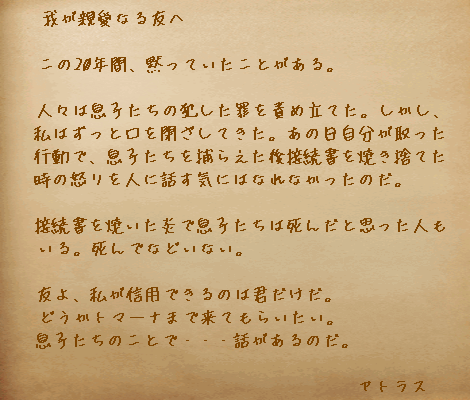 我が親愛なる友へ
この20年間、黙っていたことがある。
人々は息子たちの犯した罪を責め立てた。しかし、
私はずっと口を閉ざしてきた。あの日自分が取った
行動で、息子たちを捕らえた後接続書を焼き捨てた
時の怒りを人に話す気にはなれなかったのだ。
接続書を焼いた炎で息子たちは死んだと思った人も
いる。死んでなどいない。
友よ、私が信用できるのは君だけだ。
どうかトマーナまで来てもらいたい。
息子たちのことで・・・話があるのだ。
アトラス